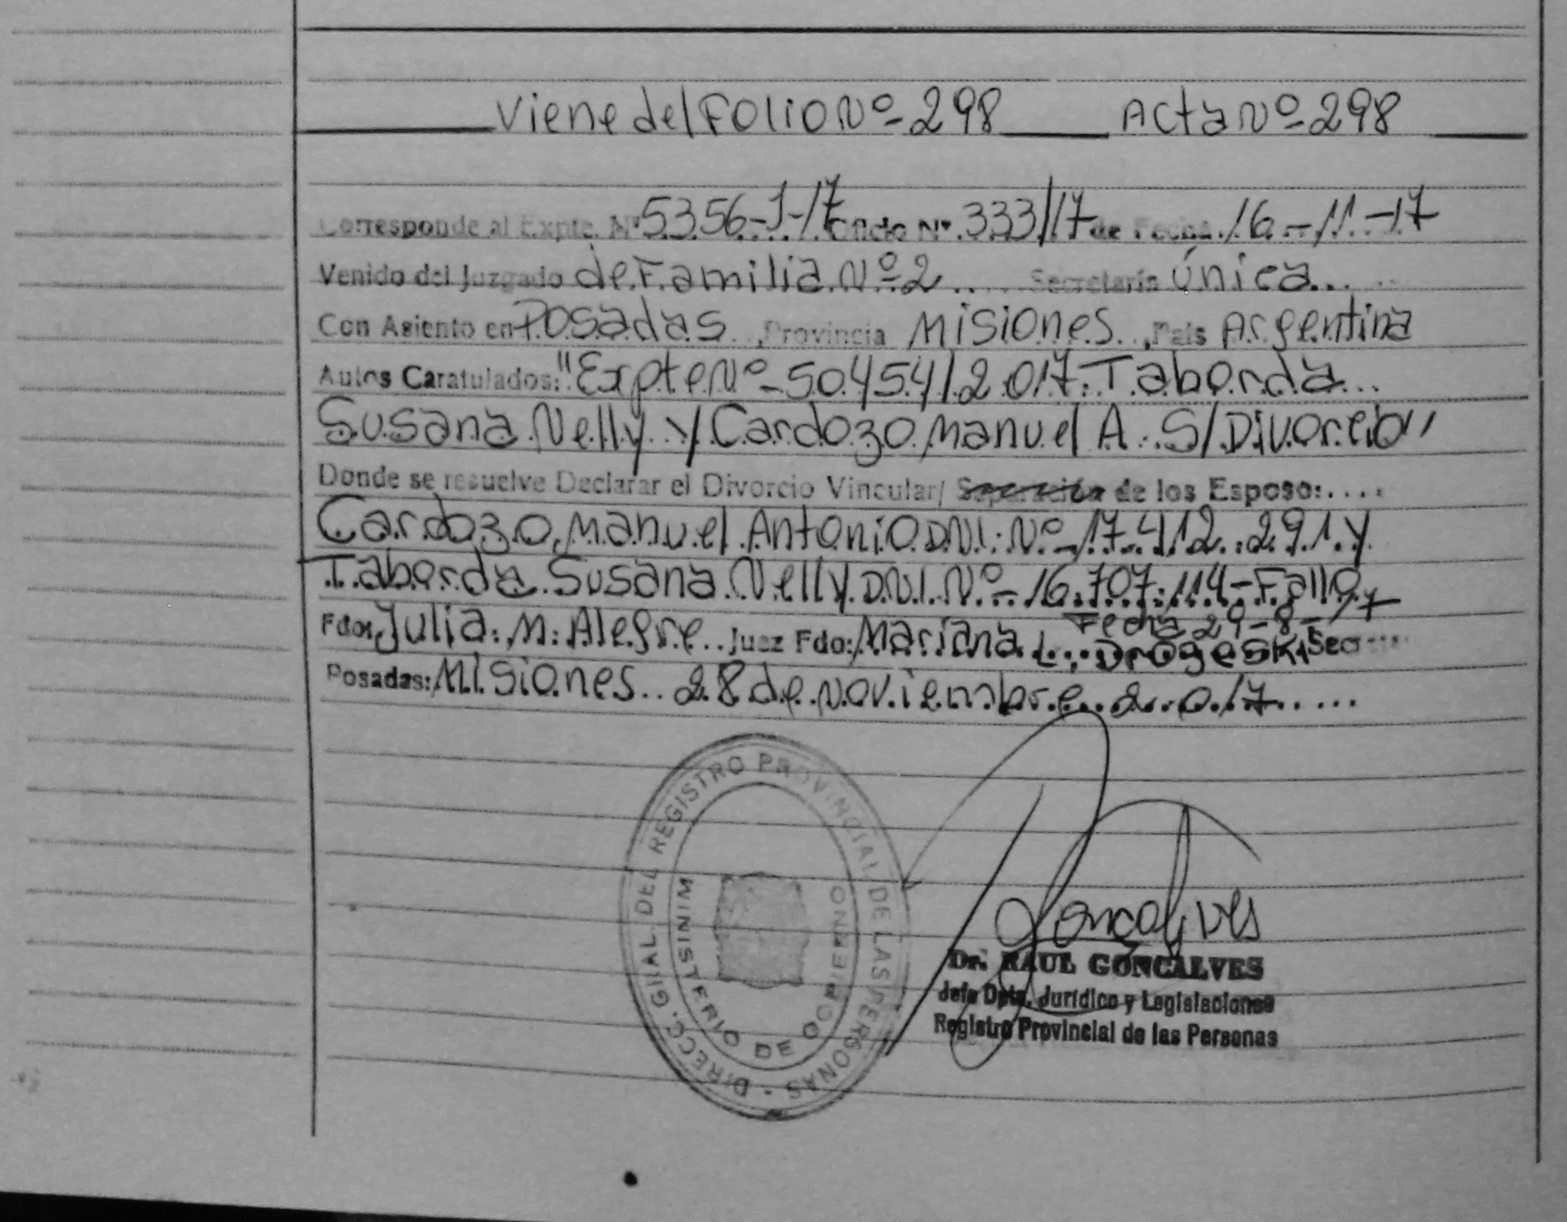 Viene del Folio Nº-298 Acta Nº-298
Corresponde al Expte. Nº 5356-J-17 Oficio Nº 333/17 de Fecha 16-11-17
Venido del Juzgado de Familia Nº 2 Secretaría única
Con Asiento en Posadas, Provincia Misiones, País Argentina
Autos Caratulados: "Expte Nº-50454/2017. Taborda
Susana Nelly y Cardozo Manuel A. S/Divorcio"
Donde se resuelve Declarar el Divorcio Vincular/ Separación de los Esposo:
Cardozo Manuel Antonio D.N.I. Nº-17.412.291 y
Taborda Susana Nelly D.N.I. Nº-16.707.114-Fallo
Fecha 29-8-17
Fdo: Julia. M. Alegre Juez Fdo: Mariana L. Drogeski Secr
Posadas: Misiones 28 de Noviembre 2017
DIRECC. GRAL. DEL REGISTRO PROVINCIAL DE LAS PERSONAS
MINISTERIO DE GOBIERNO
Goncalves
Dr. RAUL GONCALVES
Jefe Dpto. Jurídico y Legislaciones
Registro Provincial de las Personas